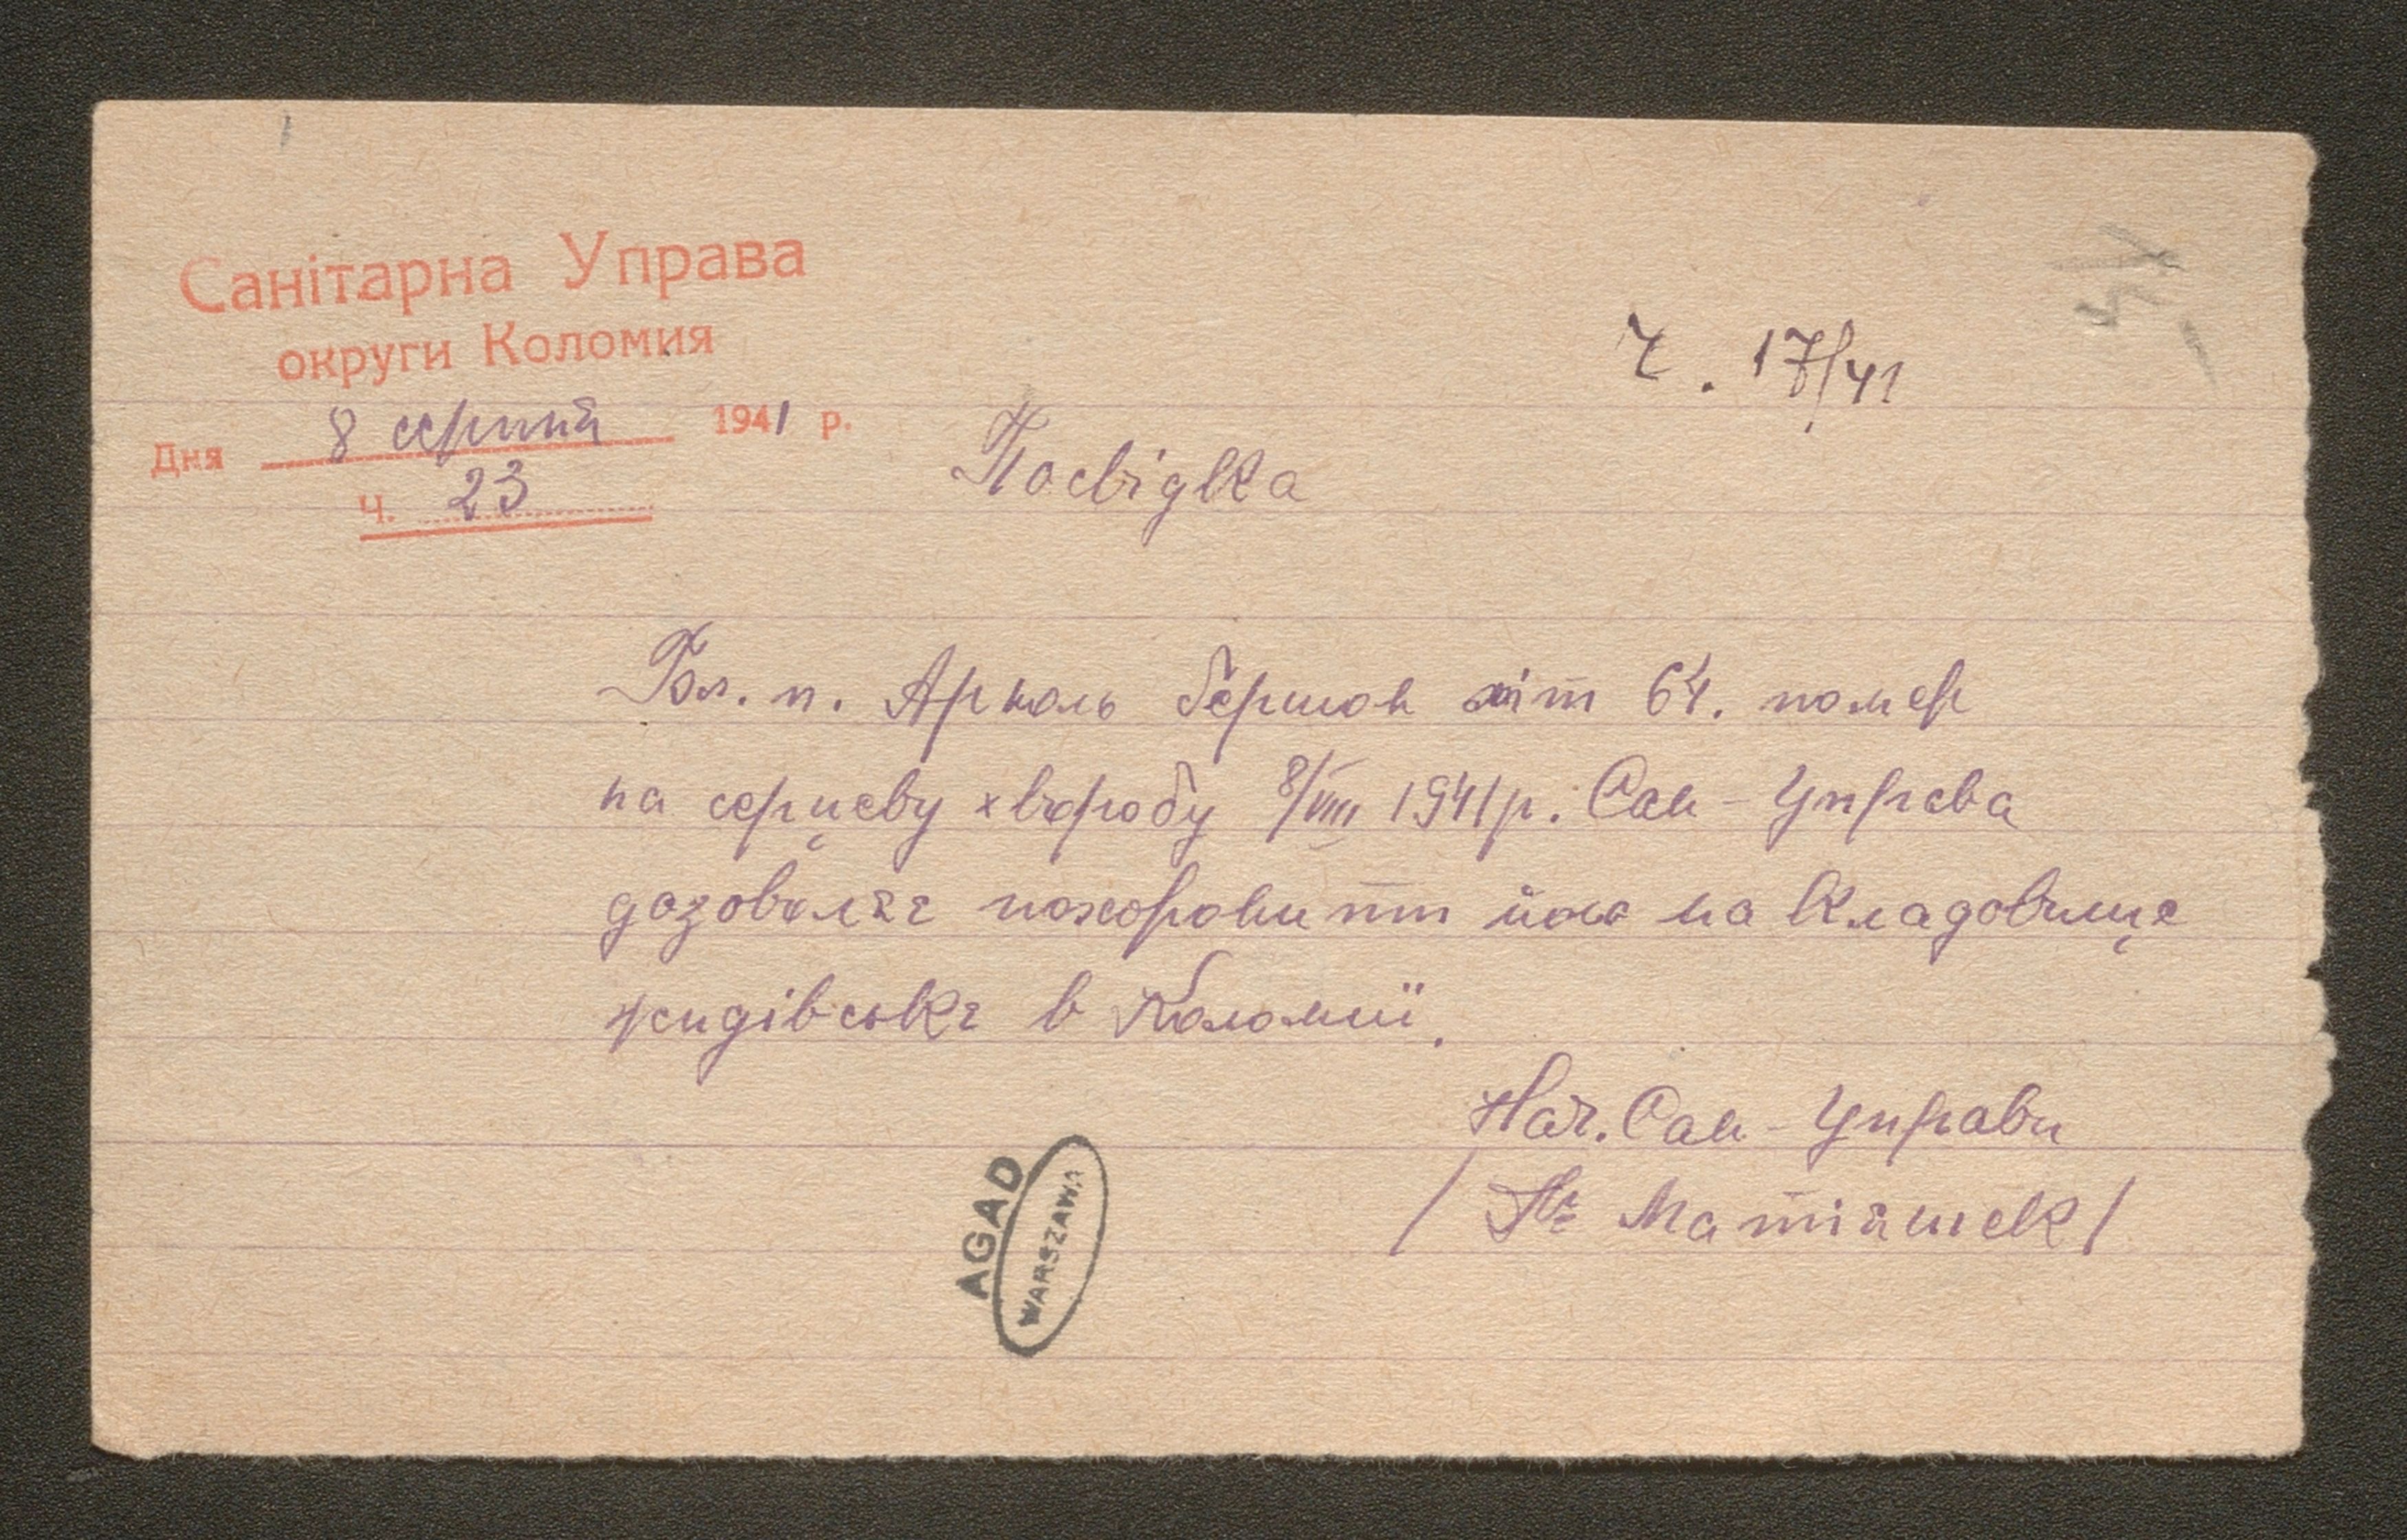 Санітарна Управа
округи Коломия
Дня 8 серпня 1941 р.
Ч. 23
Ч. 17/41
Посвідка
Бл. п. Арноль Бершон літ 64. помер
на серцеву хворобу 8/VIII 1941 р. Сан-Управа
дозволяє похоронити його на кладовище
жидівське в Коломиї.
Нач. Сан-Управи
/ Матіяшек /
AGAD
WARSZAWA